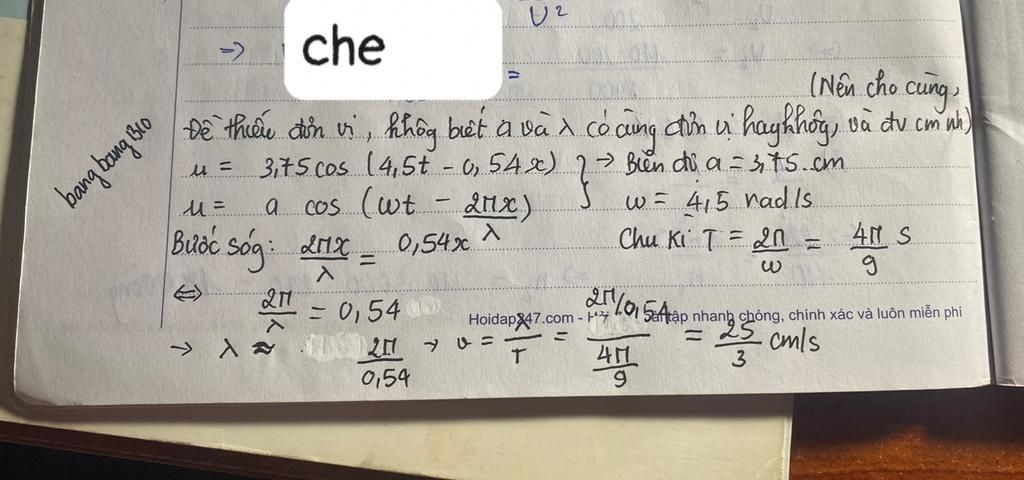 U²
=>
che
=
(Nên cho cùng,
Đề thiếu đơn vị, không biết a và λ có cùng đơn vị hay không, và đv cm nh)
bangbangBio
u = 3,75 cos (4,5t - 0,54x) } → Biên độ a = 3,75 cm
u = a cos (ωt - 2πx/λ) ω = 4,5 rad/s
Bước sóng: 2πx/λ = 0,54x Chu kì T = 2π/ω = 4π/9 s
⇔ 2π/λ = 0,54
Hoidap247.com - tập nhanh chóng, chính xác và luôn miễn phí
→ λ ≈ 2π/0,54 → v = λ/T = (2π/0,54)/(4π/9) = 25/3 cm/s